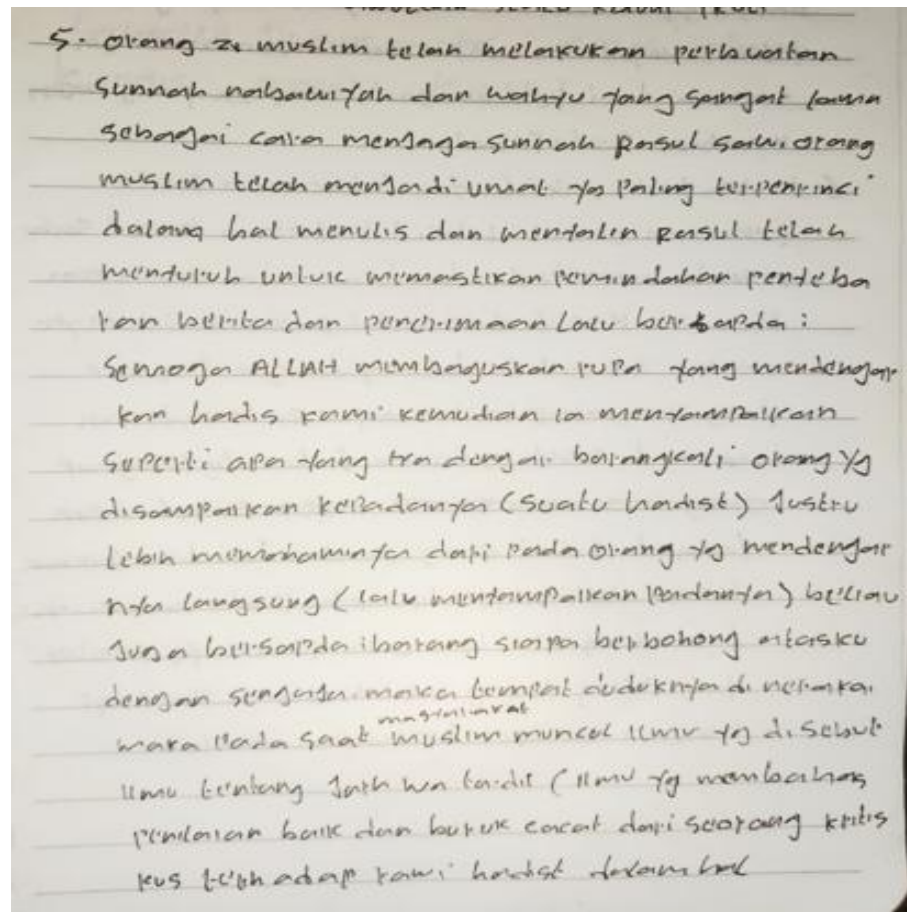 5. orang z muslim telah melakukan perbuatan
sunnah nabawiyah dan wahyu yang sangat lama
sebagai cara menjaga sunnah Rasul saw. orang
muslim telah menjadi umat yg paling terperinci
dalam hal menulis dan menjalin Rasul telah
menyuruh untuk memastikan pemindahan penyeba
ran berita dan penerimaan lalu bersapda :
Semoga ALLAH membaguskan rupa yang mendengar
kan hadis kami kemudian ia menyampaikan
seperti apa yang dengar barangkali orang yg
disampaikan kepadanya (suatu hadist) Justru
lebih memahaminya dari pada orang yg mendengar
nya langsung (lalu menyampaikan padanya) beliau
Juga bersapda : barang siapa berbohong atasku
dengan sengaja maka tempat duduknya di neraka.
maka pada saat masyarakat muslim muncul ilmu yg disebut
ilmu tentang Jarh wa ta'dil (ilmu yg membahas
penilaian baik dan buruk cacat dari seorang kritis
kus terhadap rawi hadist dalam hal